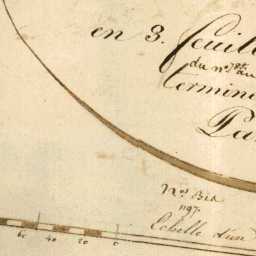 en 3. feuill
du n° au
termin
Pa
n° Bis
1197
Echelle d'un
60 40 20 0